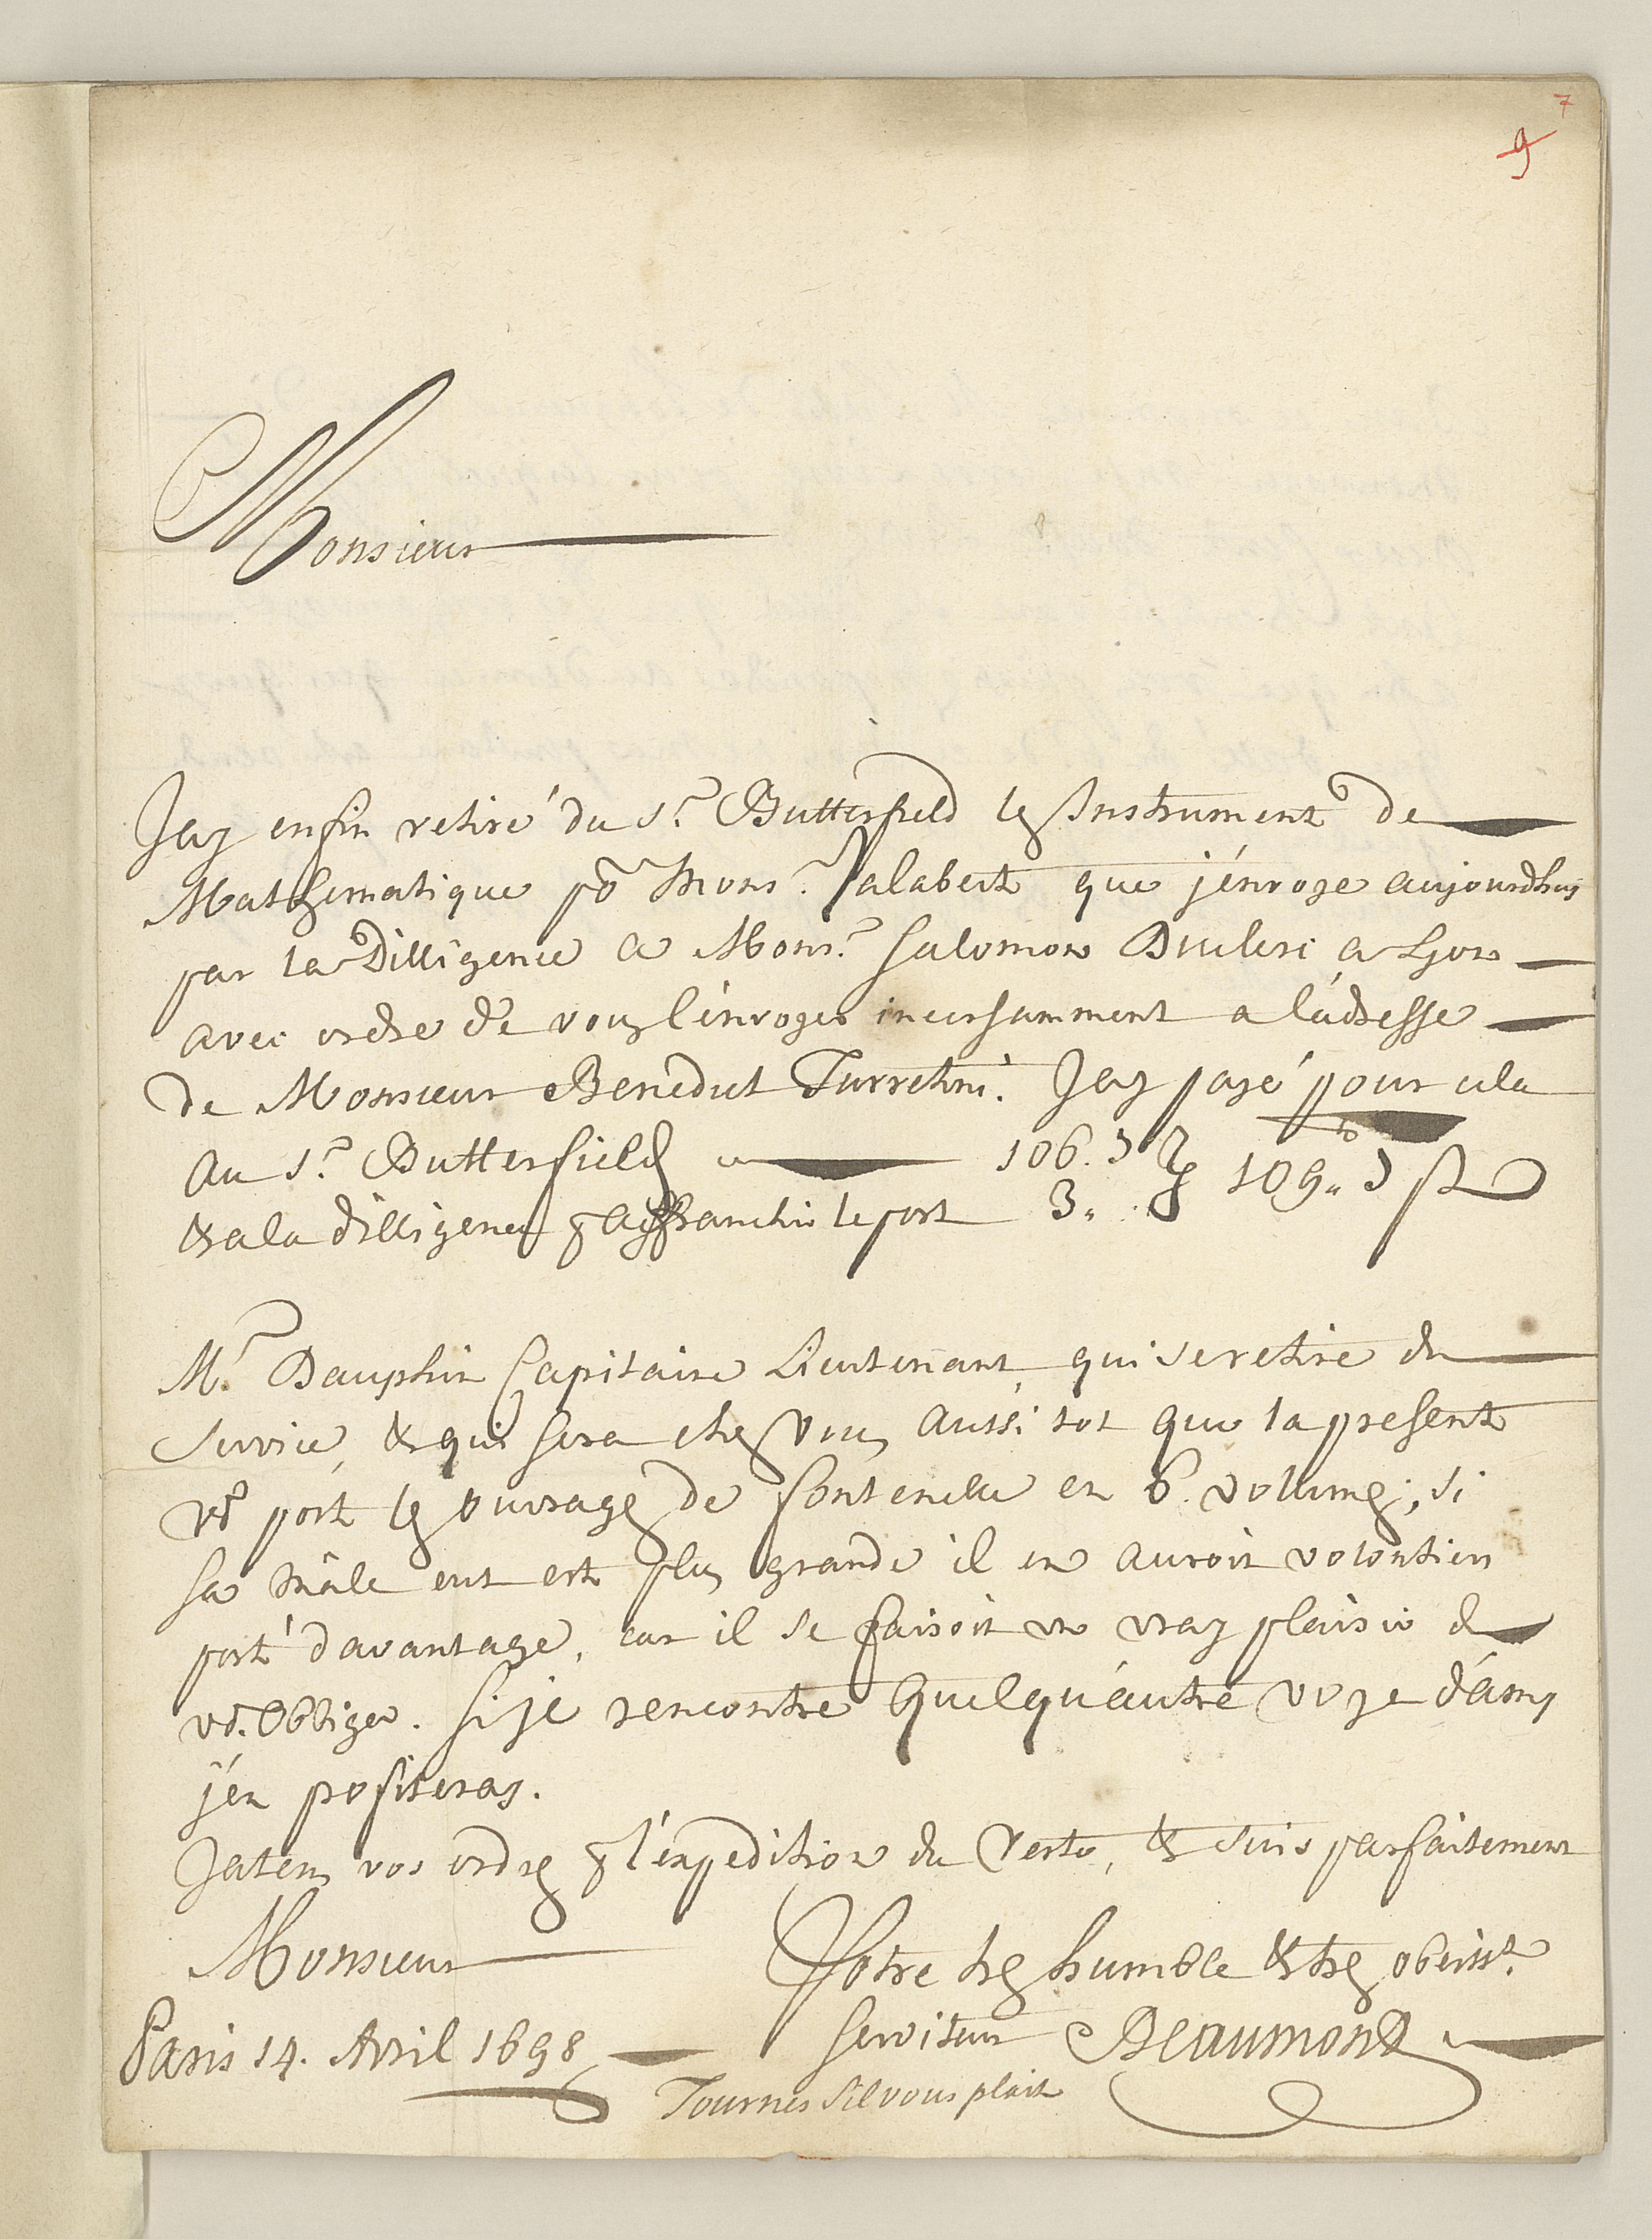 7
9
Monsieur
Jay enfin retiré du Sr. Butterfield les Instrument de
Mathematique po Monsr. Jalabert que j'énvoye aujourdhuy
par la Dilligence a Monsr. Salomon a Lyon
avec ordre de vous l'énvoyer incessamment a l'adresse
de Monsieur Benedict Turretini. Jay payé pour cela
au Sr. Butterfield 106.
& a la dilligence affranchir le port 3. 109.
Mr. Dauphin Capitaine Lieutenant, qui se retire du
service, & qui sera chez vous aussi tot que la presente
vs porte les ouvrages de fontenelle en 6. vollumes; si
sa Mâle eut esté plus grande il en auroit volontiers
porté davantage, car il se faisoit un vray plaisir de
vs. Obliger. Si je rencontre quelqu'autre voye d'amy
j'en profiteray.
Jatens vos ordres l'éxpedition du reste, & suis parfaitement
Monsieur
Votre tres humble & tres obeisst.
serviteur Beaumont
Paris 14. Avril 1698
Tournés sil vous plait